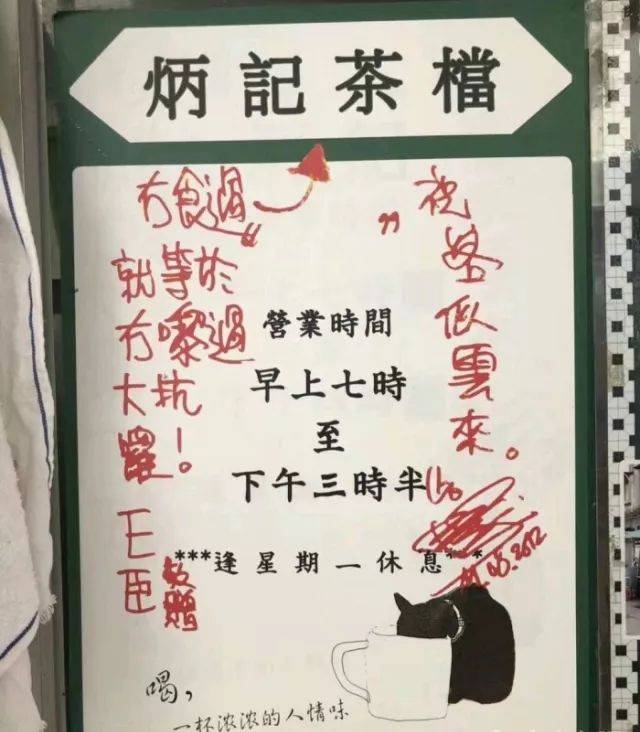 炳記茶檔
冇食過
就等於
冇嚟過
大坑
囉！
巨
敬贈
祝客似雲來。
營業時間
早上七時
至
下午三時半
***逢星期一休息***
11.05.2012
喝，
一杯浓浓的人情味